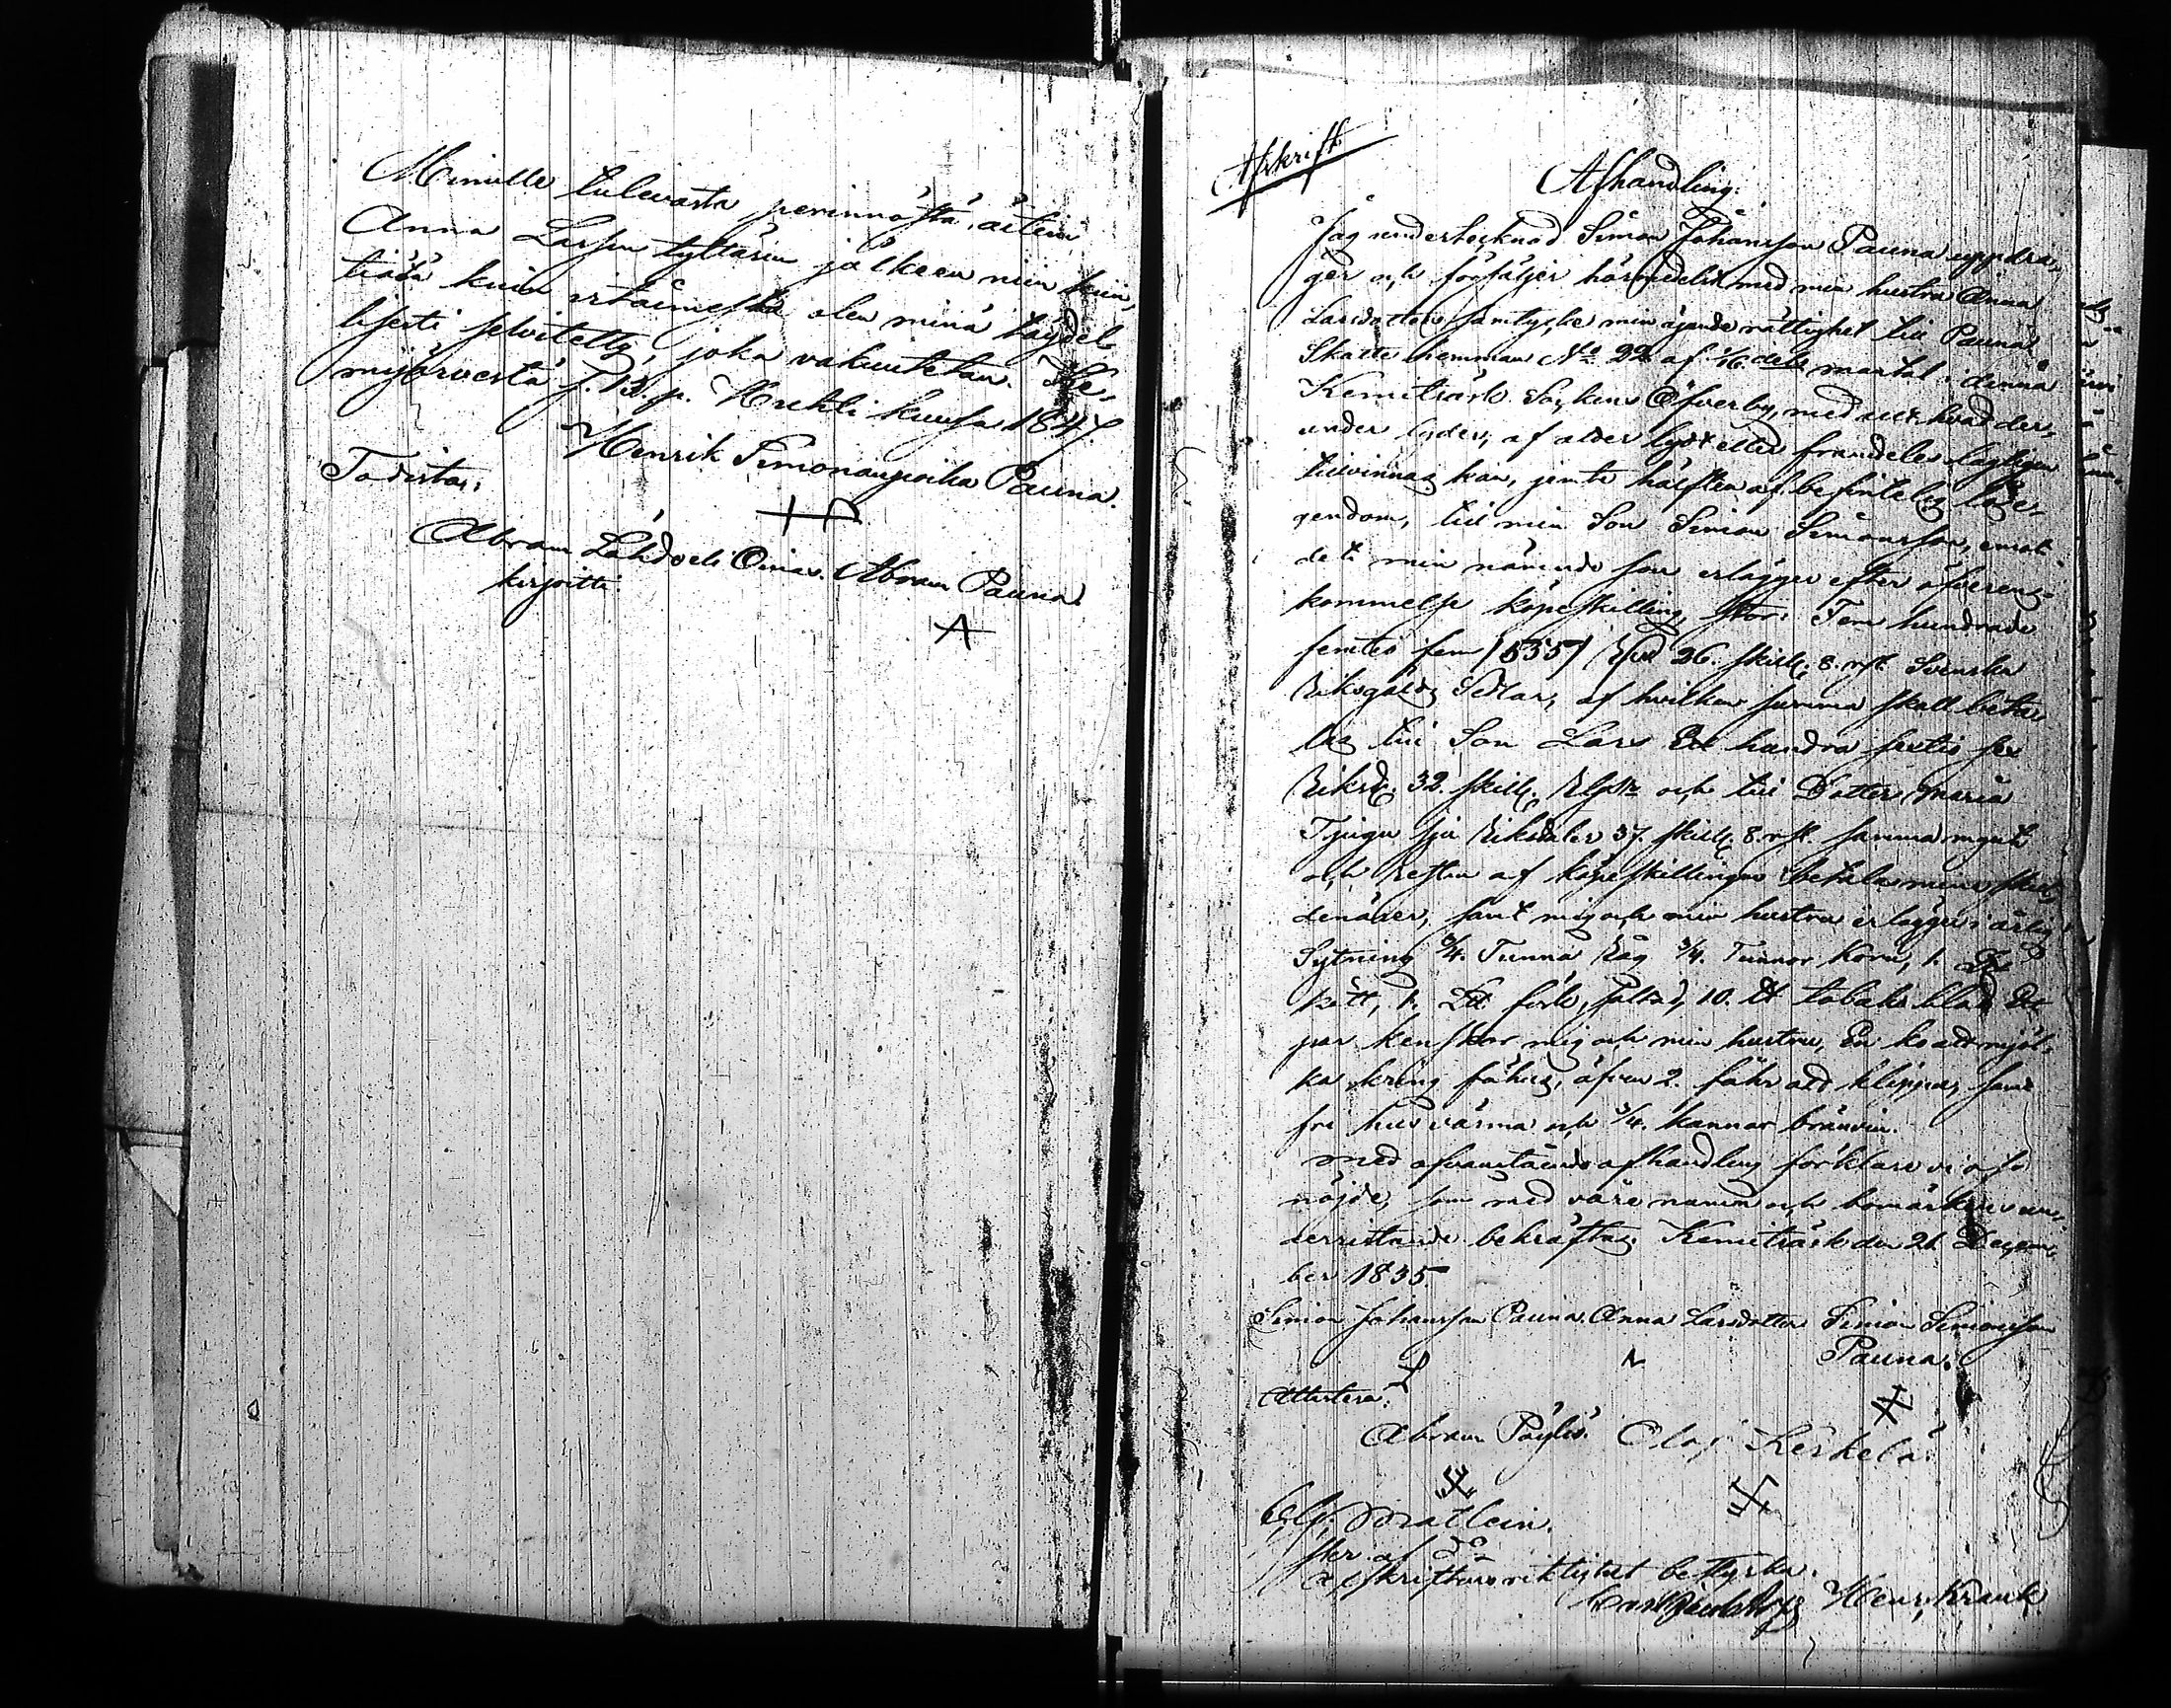 Minulle tulevasta perinnöstä, äitein
Anna Larsen tyttären jälkeen niin kiin,
tiästä kuin irtaimesta olen minä täydel
lisesti selvitetty, joka vakuutetan. Ke,
mijärvestä j. 13. p. Huhti kuusa 1847.
Henrik Simonanpoika Pauna.
Todistaa:
Abram Lahdoeli Oinas. Abram Pauna.
kirjoitti
Afskrift
Afhandling.
Jag undertecknad Simon Johansson Pauna uppdra,
ger och försäljer härmedelst med min hustru Anna
Larsdotters samtycke min ägande rättighet till Pauna
Skatte hemman No 22 af 1/6 dels mantal i denna
Kemiträsk Sockens Öfverby, med allt hvad der,
under lyder, af ålder lydt eller framdeles lagligen
tillvinnas kan, jemte hälften af befintelig löse,
gendom, till min Son Simon Simonsson, emot
det min nämnde son erlägger efter öfverens,
kommelse köpeskilling, stor: Fem hundrade
femtio fem (555) Rd 26. skill. 8. rst. Svenska
Riksgälds Sedlar, af hvilken summa skall beta
las till Son Lars Ett hundra sextio sex
Riksd. 32. skill. Rgds och till Dotter Maria
Tjugu sju Riksdaler 37. skill. 8. rst. samma mynt
och Resten af köpeskillingen betala mina skul
denärer, samt mig och min hustru erlägger i årlig
Sytning 3/4. Tunna Råg 3/4. Tunnor Korn, 1. L℔
kött, 1. L℔ fisk, saltad, 10. ℔ tobaks blad Ett
par kenskor mig och min hustru, En ko att mjöl,
ka kring fähus, äfven 2. fåhr att klippas, samt
fri hus värma och 3/4. kannor bränvin.
Med ofvanstående afhandling förklare vi oss
nöjde, som med våre namn och bomärken un,
derrittande bekräftas. Kemiträsk den 21 Decem,
ber 1835.
Simon Johansson Pauna. Anna Larsdotter Simon Simonsson
Pauna.
Attestera:
Abram Pöyliö. Olof Kerkelä.
Mathlein.
skr. af
Afskriftens riktighet bestyrka.
Henr. Krank